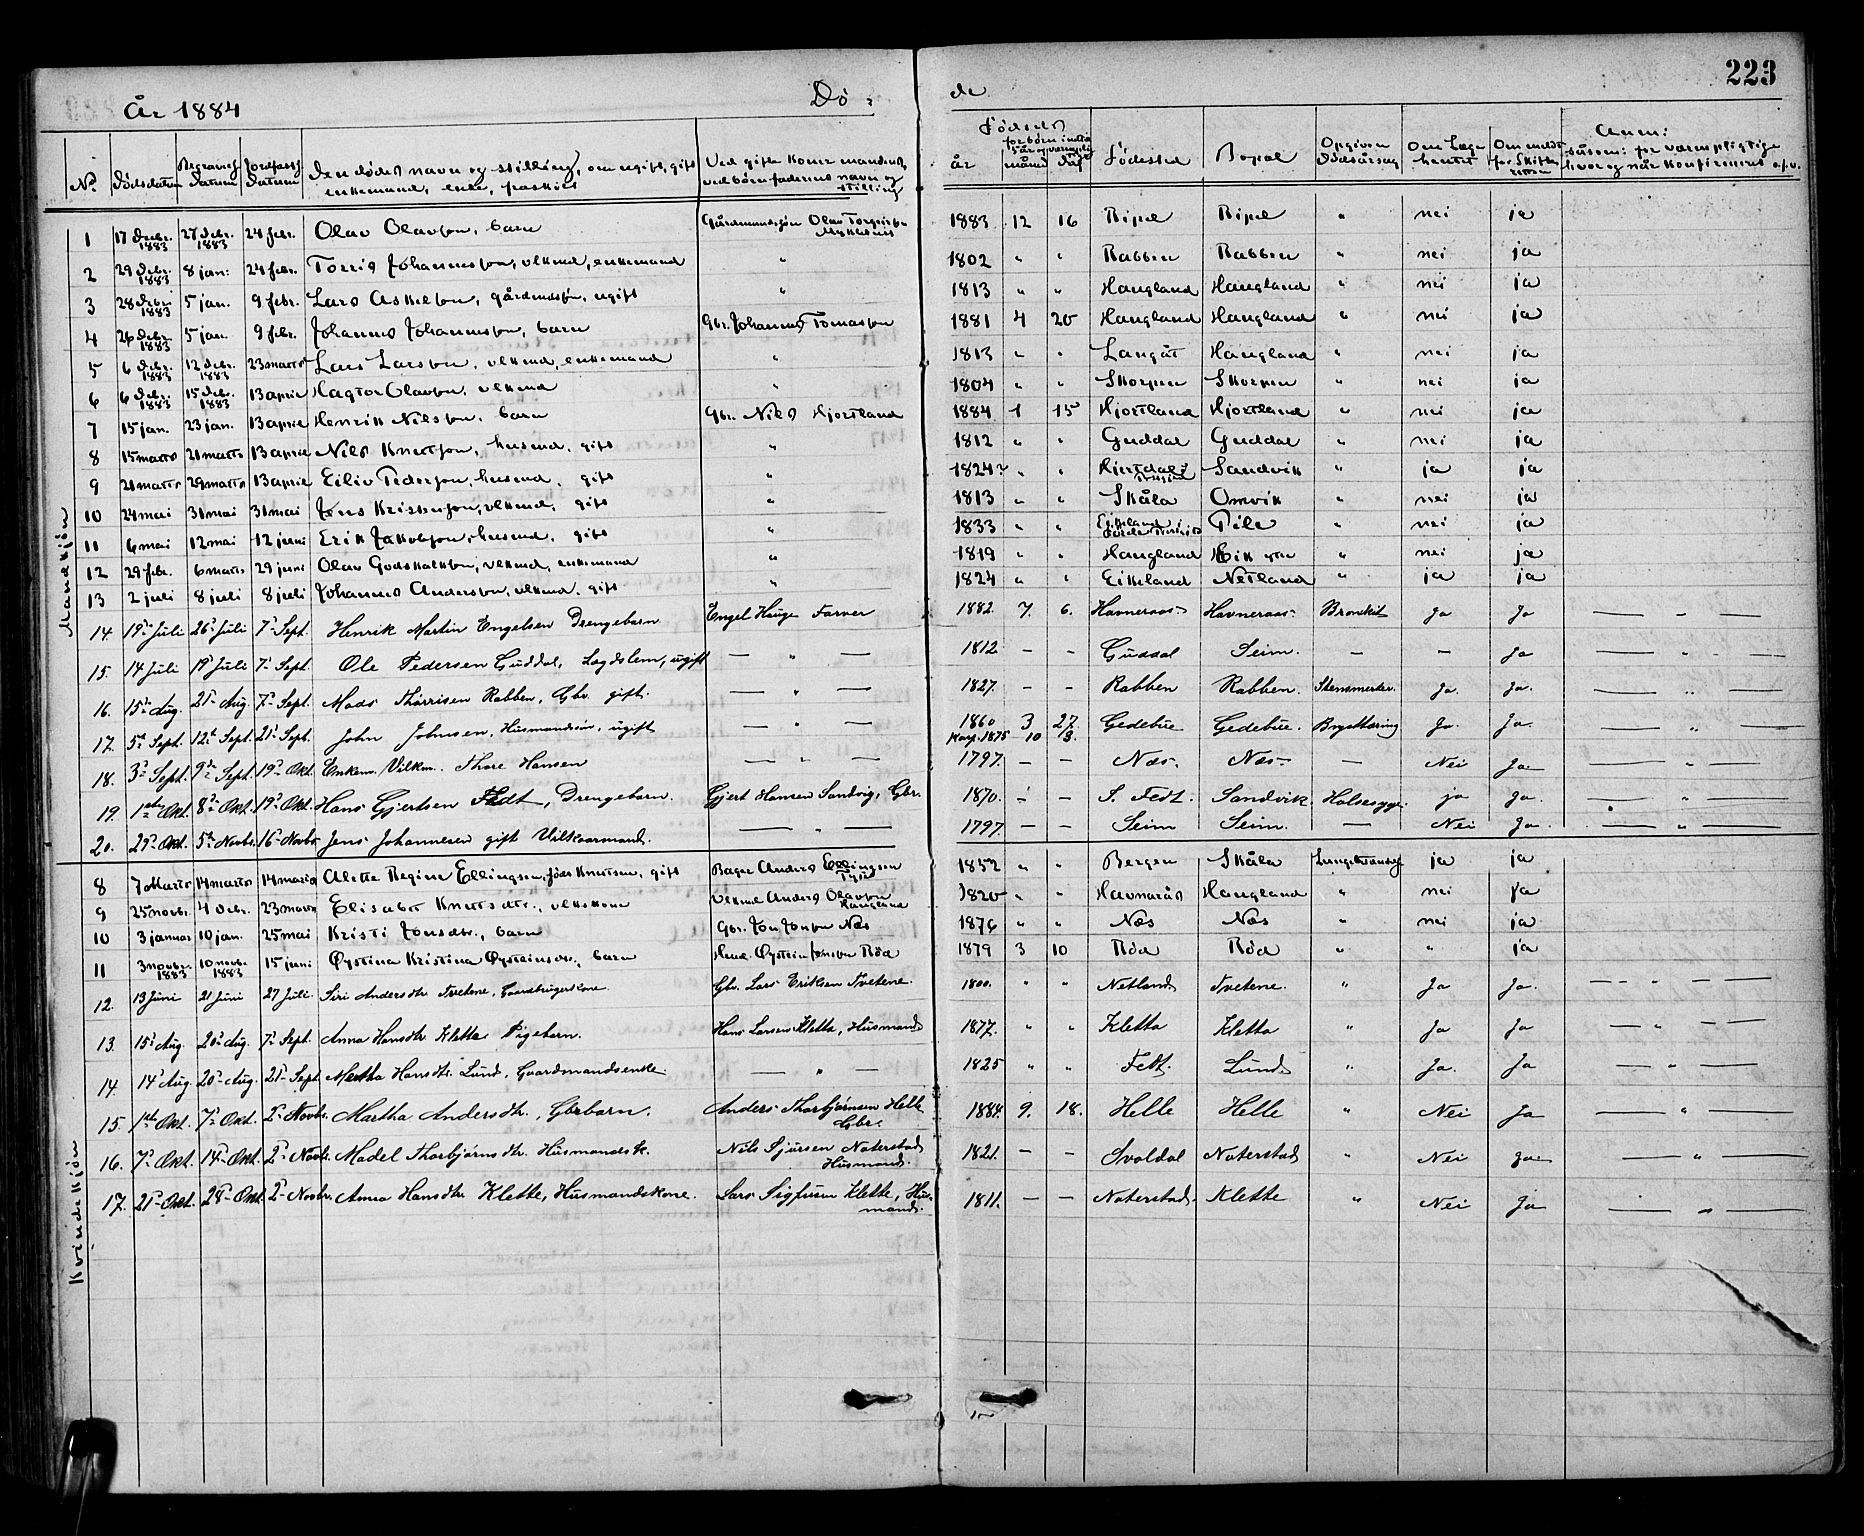 År 1884 Dø- de. 223
No. Dødsdatum Begravelsesdatum Jordfæst. datum Den dødes navn og stilling, om ugift, gift enkemand, enke, fraskilt Ved gifte koner mandens, ved børn faderens navn og stilling Fødsels år måned dag Fødested Bopæl Opgiven dødsårsag Om Læge hentet Om meldt for Skifteretten Anm:
Mandkjøn
1 17 decbr. 1883 27 decbr. 1883 24 febr. Olav Olavson, barn Gårdmandssøn Olav 1883 12 16 " nei ja
2 29 debr. 1883 8 jan: 24 febr. Torris Johannesson, vlkmd, enkemand " 1802 " " Rabben Rabben " nei ja
3 28 debr. 1883 5 jan. 9 febr. Lars Askelson, gårdmdsøn, ugift " 1813 " " Haugland Haugland " nei ja
4 26 debr. 1883 5 jan. 9 febr. Johannes Johannesson, barn Gbr. Johannes Tomasson 1881 4 20 Haugland Haugland " nei ja
5 6 debr. 1883 12 debr. 1883 23 marts Lars Larsson, vlkmd, enkemand " 1813 " " Langåt Haugland " nei ja
6 6 debr. 1883 15 debr. 1883 13 april Hagtor Olavson, vlkmd " 1804 " " Skorpen Skorpen " nei ja
7 15 jan. 23 jan. 13 april Henrik Nilsson, barn Gbr. Nils Hjortland 1884 1 15 Hjortland Hjortland " nei ja
8 15 marts 21 marts 13 april Nils Knutson, husmd, gift " 1812 " " Guddal Guddal " nei ja
9 21 marts 29 marts 13 april Eiliv Pederson, husmd, gift " 1824? " " Sandvik " ja ja
10 24 mai 31 mai 31 mai Jens Kristenson, vlkmd, gift " 1813 " " Skåla Omvik " nei ja
11 6 mai 12 mai 12 juni Erik Jakobson, husmd, gift " 1833 " " Eikeland Førde Pile " nei ja
12 29 febr. 6 marts 29 juni Olav Godskalkson, vlkmd, enkemand " 1819 " " Haugland " nei ja
13 2 juli 8 juli 8 juli Johannes Anderson, vlkmd, gift " 1824 " " Eikeland Netland " ja ja
14. 19de Juli 26de Juli 7de Sept. Henrik Martin Engelsen Drengebarn Engel Hauge Farver 1882. 7. 6. Havneraas Havneraas Bronkit Ja Ja — " —
15. 14 Juli 19 Juli 7de Sept. Ole Pedersen Guddal, Lægdslem, ugift — " — 1812 — — Guddal Seim. — — Ja — " —
16. 15de Aug. 21de Aug. 7de Sept. Mads Thorrisen Rabben, Gbr. gift. — " — 1827. — — Rabben Rabben. Ja. Ja. — " —
17. 5te Sept. 12te Sept. 21de Sept. John Johnsen, Husmandssøn, ugift — " — 1860 3 27. Konf. 1875 10/3. Gedebøe Gedebøe. Brysttæring Ja. Ja. — " —
18. 3de Sept. 9de Sept. 19de Okt. Enkem. Vilkm. Thore Hansen — " — 1797. — — Næs. Næs. — Nei Ja
19. 1ste Okt. 8de Okt. 19de Okt. Hans Gjertsen Fedt, Drengebarn. Gjert Hansen Sandvig, Gbr. 1870. — — S. Fedt. Sandvik. Halsesyge. ja ja. — " —
20. 29de Okt. 5te Novbr. 16de Novbr Jens Johannesen gift Vilkaarmand. — " — 1797 — — Seim Seim. — Nei Ja. — " —
Kvindekjøn
8 7 Marts 14 marts 14 marts Alette Regine Ellingsen, født Knutsen, gift Bager Anders Ellingsen 1852 " " Bergen Skåla ja ja
9 25 novbr. 4 debr. 23 marts Elisabet Knutsdtr., vlkskone Vlkmd Anders Olavson Haugland 1820 " " Havnarås Haugland " nei ja
10 3 januar 10 jan. 25 mai Kristi Jonsdtr., barn Gbr. Jon Jonson Næs 1876 " " Næs Næs " nei ja
11 3 novbr. 1883 10 novbr. 1883 15 juni Øystina Kristina Øysteinsdtr, barn Husmd. Øystein Jonson Röd 1879 3 10 Röd Röd " " ja
12. 13 Juni 21 Juni 27 Juli Siri Andersdtr Tvetene, Gaardbrugerkone Gbr. Lars Eriksen Tvetene. 1800. " " Netland Tvetene. " Ja Ja. — " —
13. 15de Aug. 20de Aug. 7de Sept. Anna Hansdtr Klette Pigebarn. Hans Larsen Klette, Husmand 1877. " " Kletta Kletta " Ja Ja — " —
14. 14de Aug. 20de Aug. 21de Sept Martha Hansdtr. Lund, Gaardmandsenke — " — 1825 " " Fedt. Lund " Ja. Ja — " —
15. 1ste Okt. 7de Okt. 2de Novbr. Martha Andersdtr., Gbrbarn. Anders Thorbjørnsen Helle Gbr. 1884. 9. 18. Helle Helle " Nei Ja — " —
16. 7de Okt. 14de Okt. 2de Novbr. Madel Thorbjørnsdtr. Husmandsk. Nils Sjursen Naterstad Husmand. 1821. — — Svoldal Naterstad " Nei ja — " —
17. 21de Okt. 28de Okt. 2de Novbr. Anna Hansdtr Klette, Husmandskone. Lars Sigfusen Klette, Husmand. 1811. — — Naterstad. Klette " Nei Ja — " —